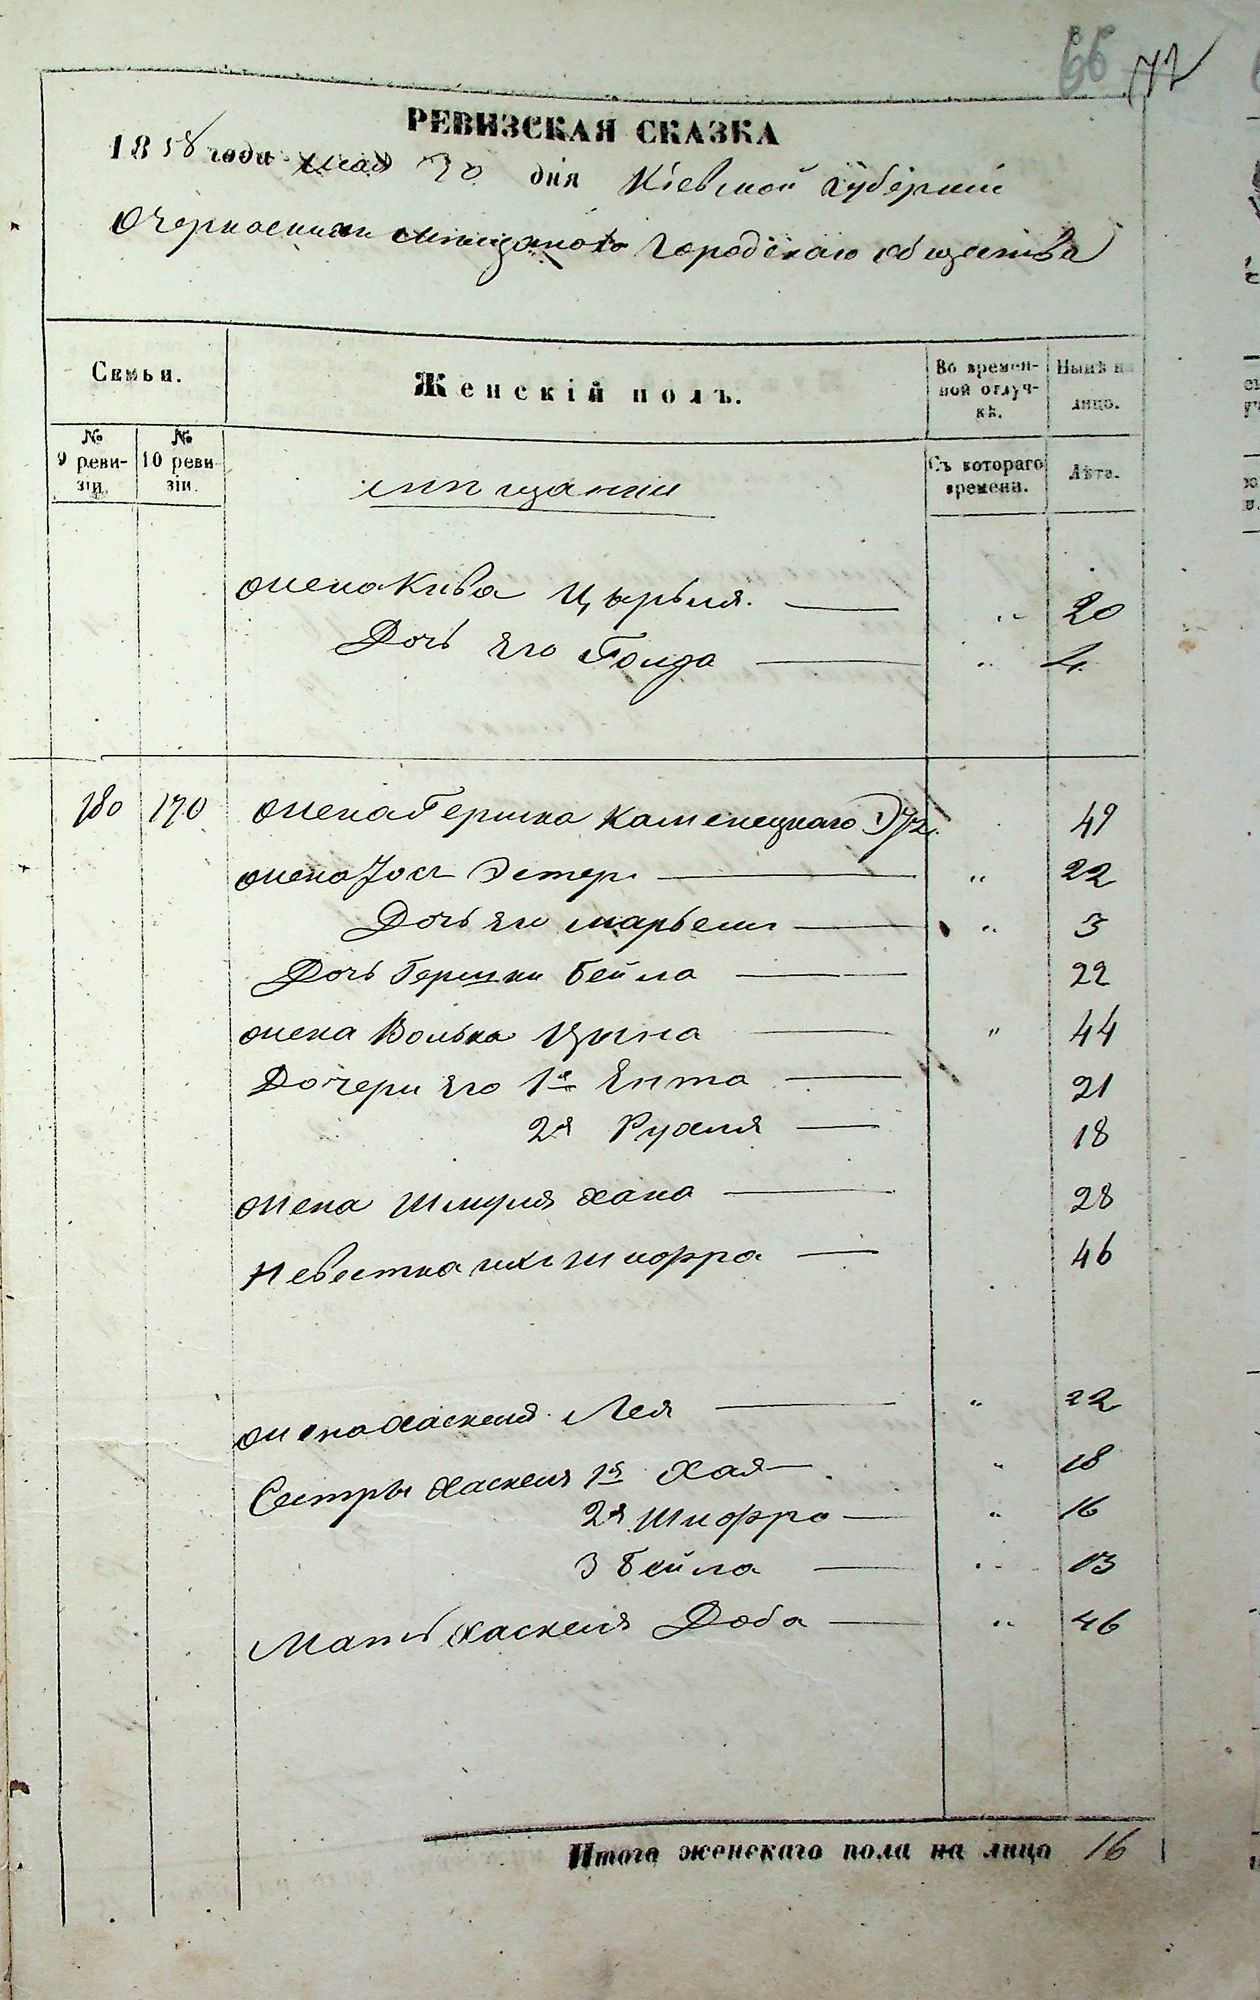 66 72
РЕВИЗСКАЯ СКАЗКА
1858 года мая 30 дня Кіевской губерніи
О Черкасскомъ городскаго общества
Семьи.
Женскій полъ.
Во времен-
ной отлуч-
кѣ.
Нынѣ на
лицо.
№
9 реви-
зіи.
№
10 реви-
зіи.
мещанки
Съ котораго
времени.
Лѣта.
жена Кива Цырля — „ 20
Дочь Его Голда — „ 4
180 170 жена Гершка Каменецкаго 49
жена Іося Эстер — „ 22
Дочь Его Марьем — „ 3
Дочь Гершки Бейла — 22
жена Волька Цына — „ 44
Дочери Его 1я Ента — 21
2я Рухля — 18
жена Шмуля Хана — 28
Невестка их Шифра — 46
жена Хаскеля Лея — „ 22
Сестры Хаскеля 1я Хая — „ 18
2я Шифра — „ 16
3 Бейла — „ 13
Мать Хаскеля Доба — „ 46
Итого женскаго пола на лицо 16